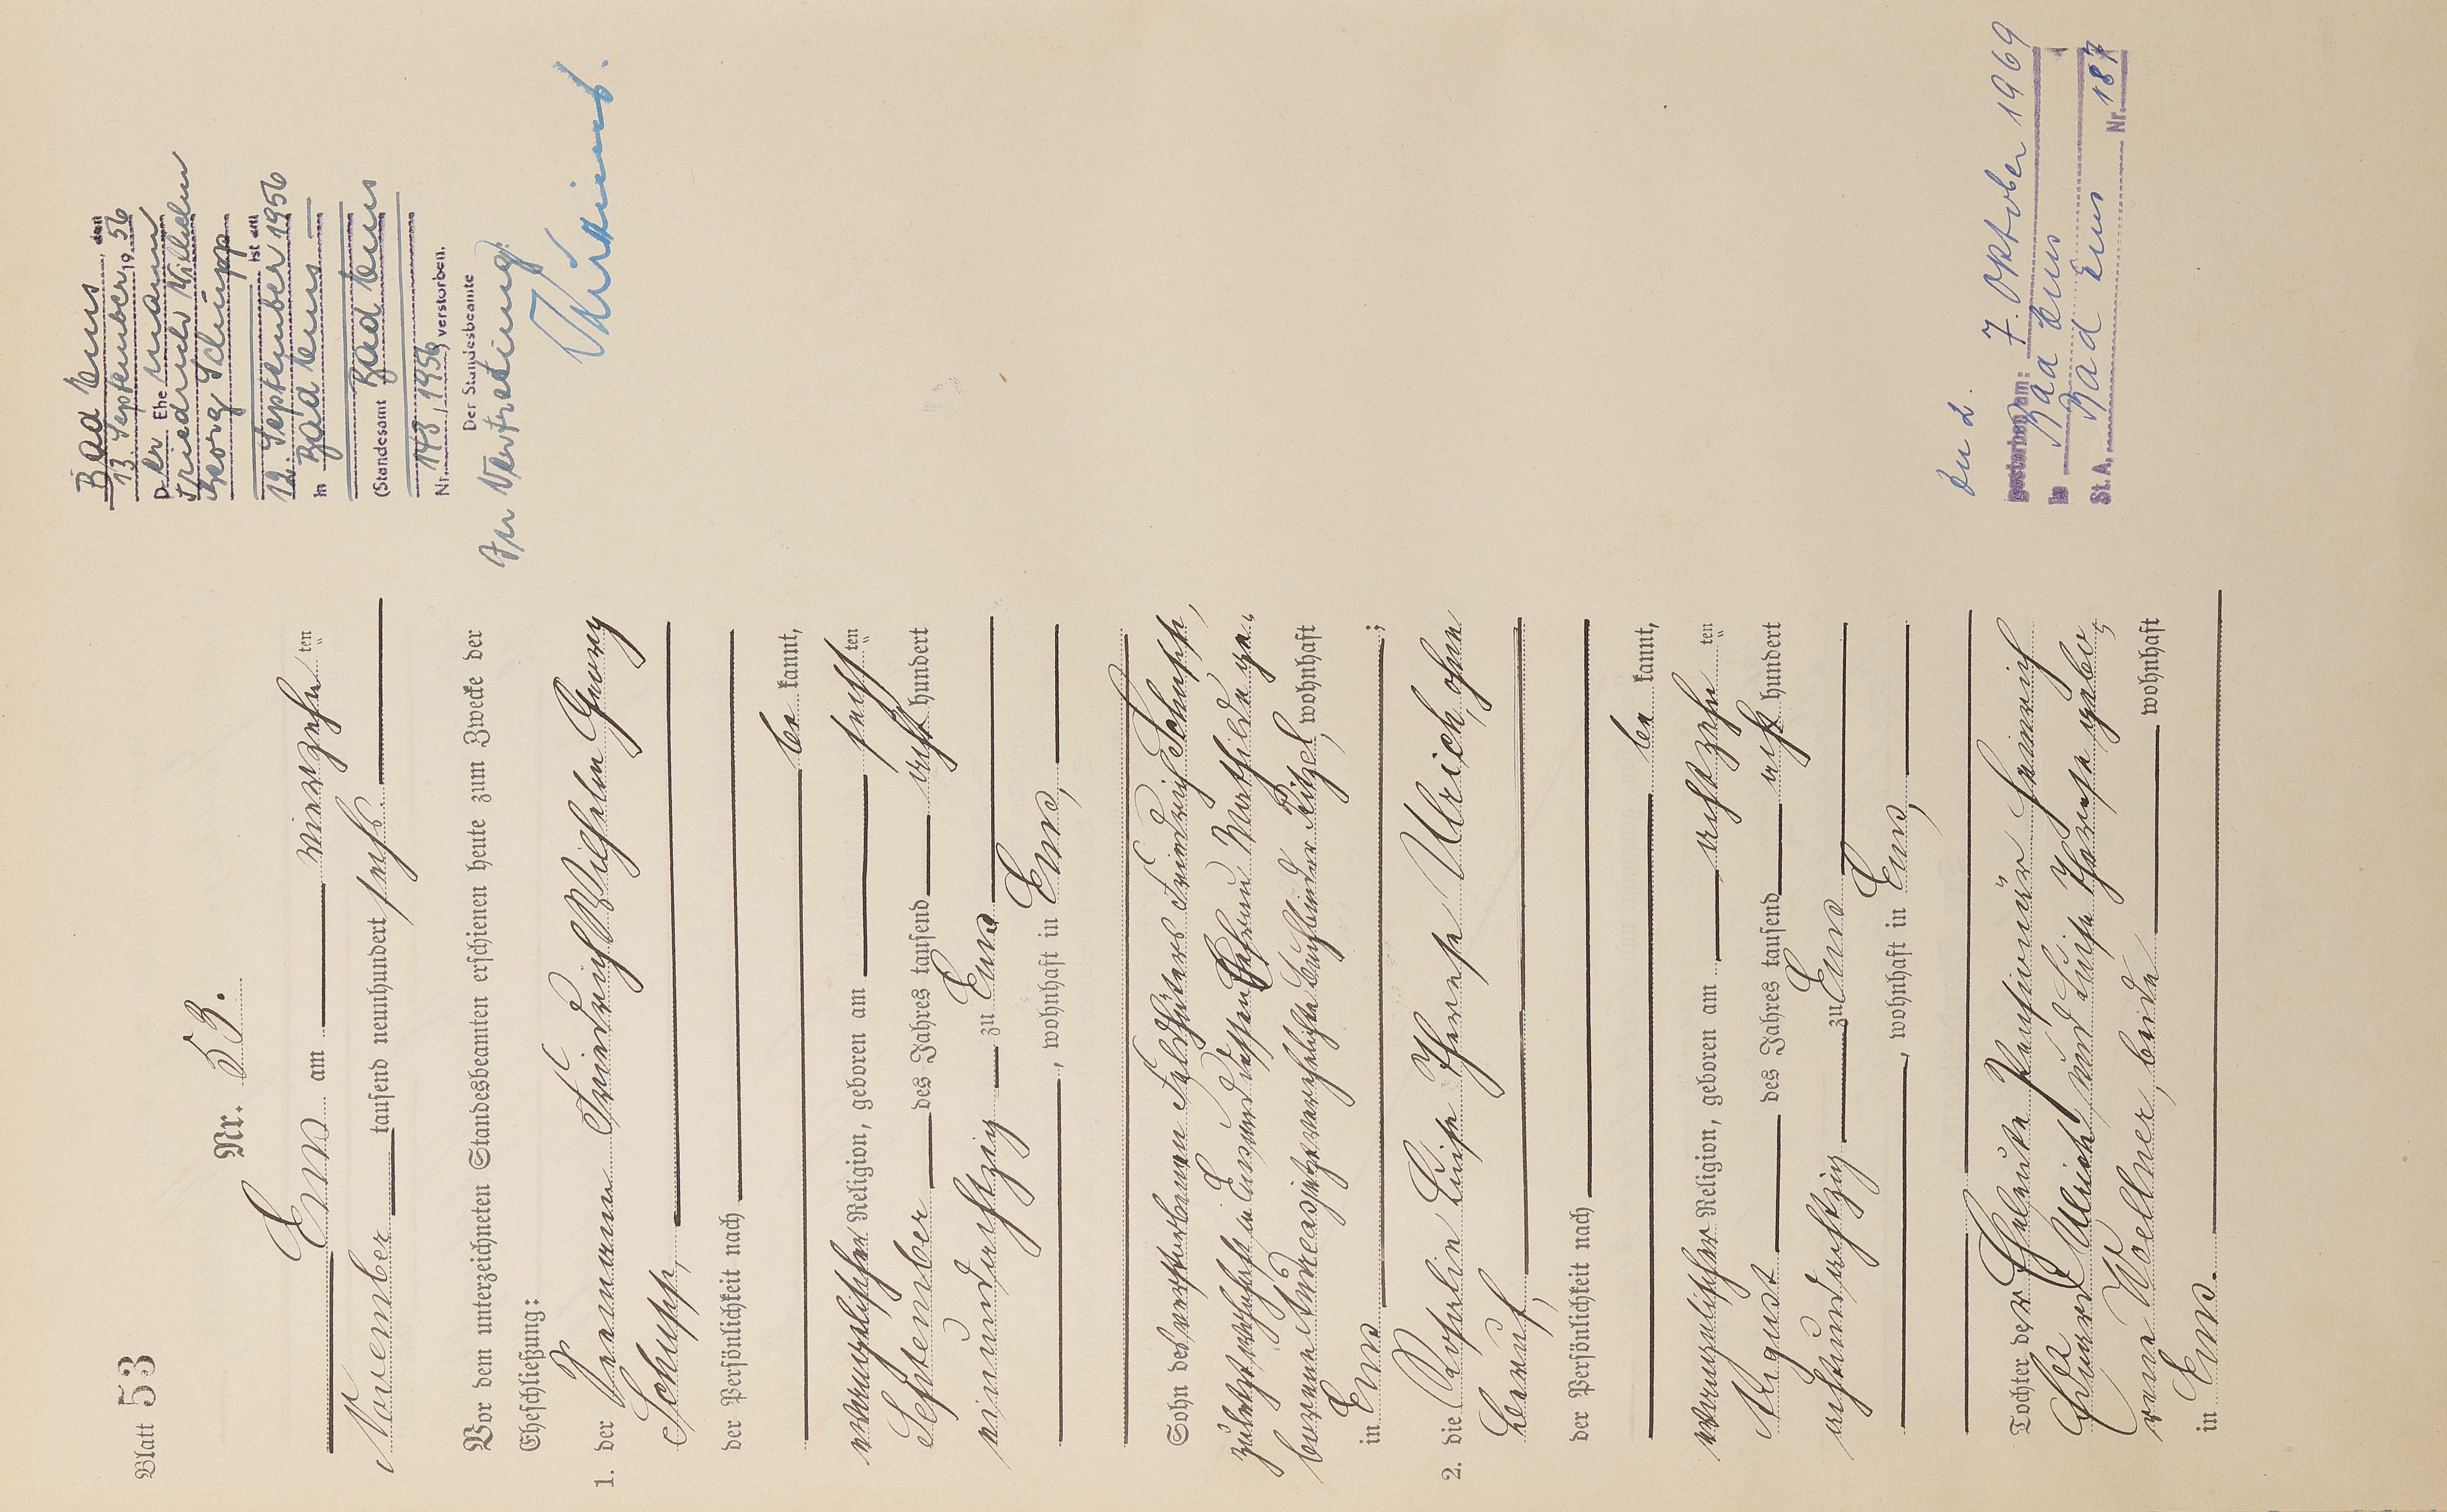 Blatt 53
Nr. 53.
Ems am vierzehn ten
November tausend neunhundert sechs.
Vor dem unterzeichneten Standesbeamten erschienen heute zum Zwecke der
Eheschließung:
1. der Friedrich Wilhelm Georg
Schupp,
der Persönlichkeit nach
be kannt,
evangelischer Religion, geboren am ten
September des Jahres tausend acht hundert
neunundachtzig zu Ems
, wohnhaft in Ems,
Sohn des verstorbenen Feldhüters Friedrich Schupp,
zuletzt wohnhaft in Ems und dessen Ehefrau Mathilde ge-
borene Andreas jetzt verehelichte Buchbinder Kitzel, wohnhaft
in Ems ;
2. die Karolin Luise Therese Ulrich, ohne
Beruf,
der Persönlichkeit nach
be kannt,
evangelischer Religion, geboren am achtzehn ten
August des Jahres tausend acht hundert
achtundachtzig zu Ems
, wohnhaft in Ems,
Tochter der Eheleute Heinrich
Eduard Ulrich und Luise Therese gebo-
rene Woellner, beide wohnhaft
in Ems.
Bad Ems, den
13. September 19 56
Der Ehe mann
Friedrich Wilhelm
Georg Schupp
ist am
12. September 1956
in Bad Ems
(Standesamt Bad Ems
Nr. 148/1956, verstorben.
Der Standesbeamte
In Vertretung:
Zu 2.
gestorben am: 7. Oktober 1969
in Bad Ems
St. A. Bad Ems Nr. 187